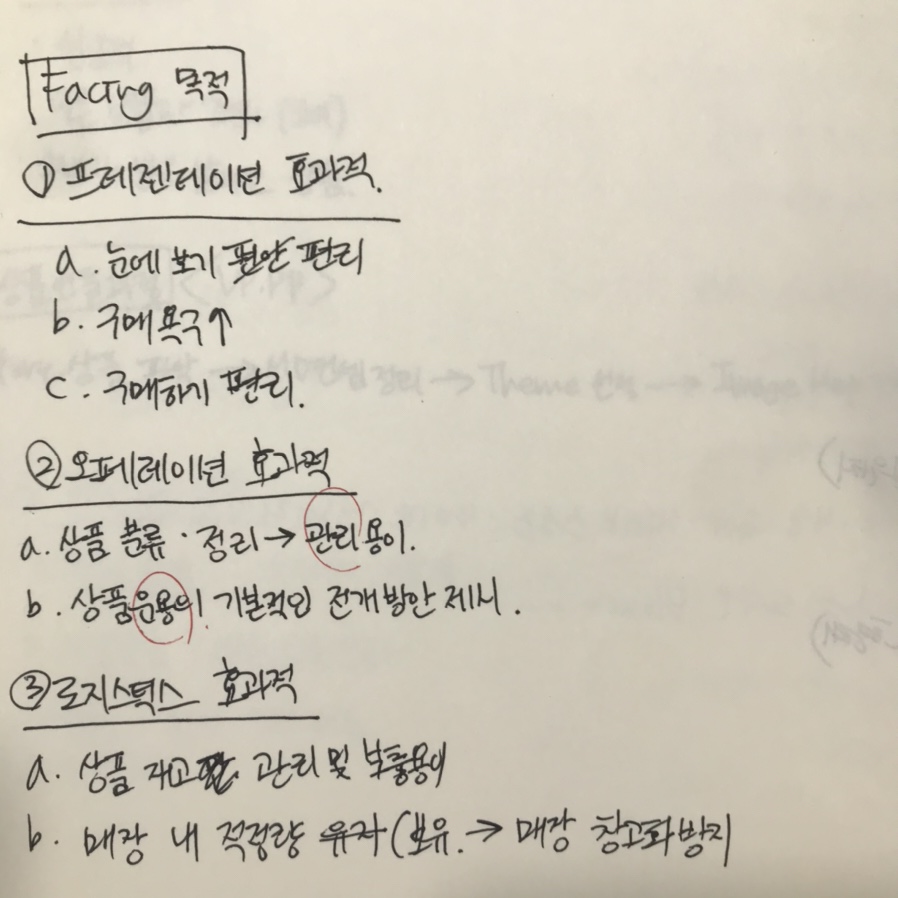 Facing 목적
① 프레젠테이션 효과적.
a. 눈에 보기 편안 편리
b. 구매욕구↑
c. 구매하기 편리.
② 오페레이션 효과적
a. 상품 분류 · 정리 → 관리용이.
b. 상품운용의 기본적인 전개방안 제시.
③ 로지스틱스 효과적
a. 상품 재고 관리 및 보충용이
b. 매장 내 적정량 유지(보유. → 매장 창고화방지